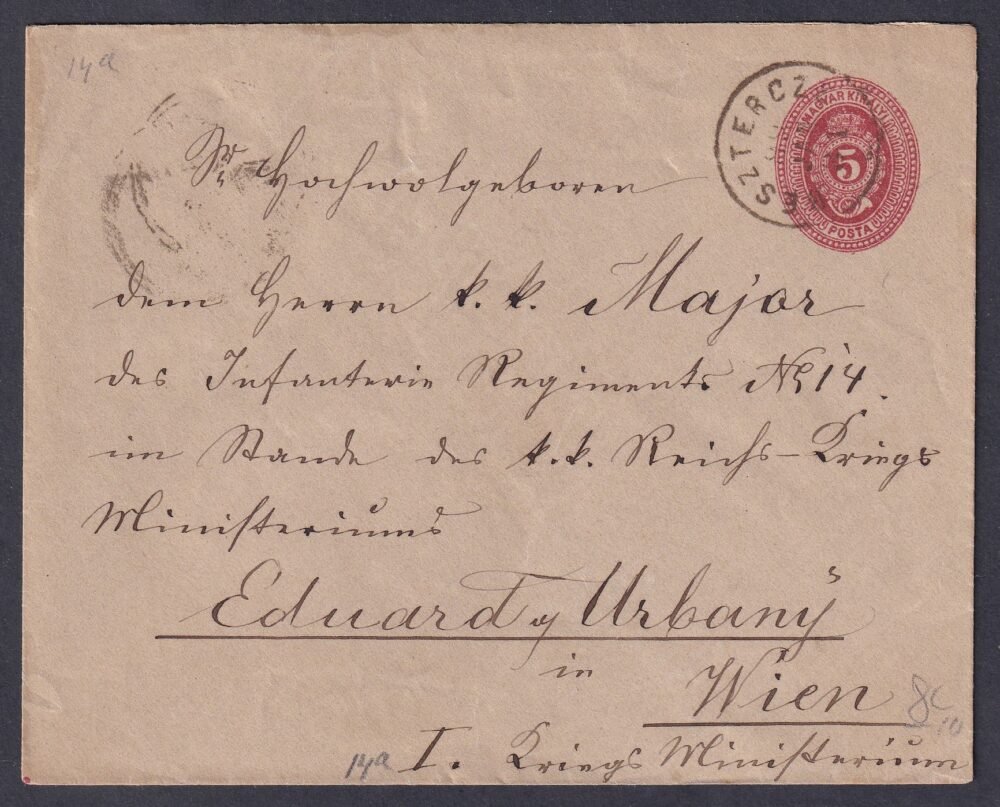 14a
ESZTERCZE
MAGYAR KIRÁLYI
5
POSTA
Sr Hochwolgeboren
dem Herrn k. k. Major
des Infanterie Regiments No 14.
im Stande des k. k. Reichs-Kriegs
Ministeriums
Eduard v Urbanÿ
in
Wien
14a I. Kriegs Ministerium